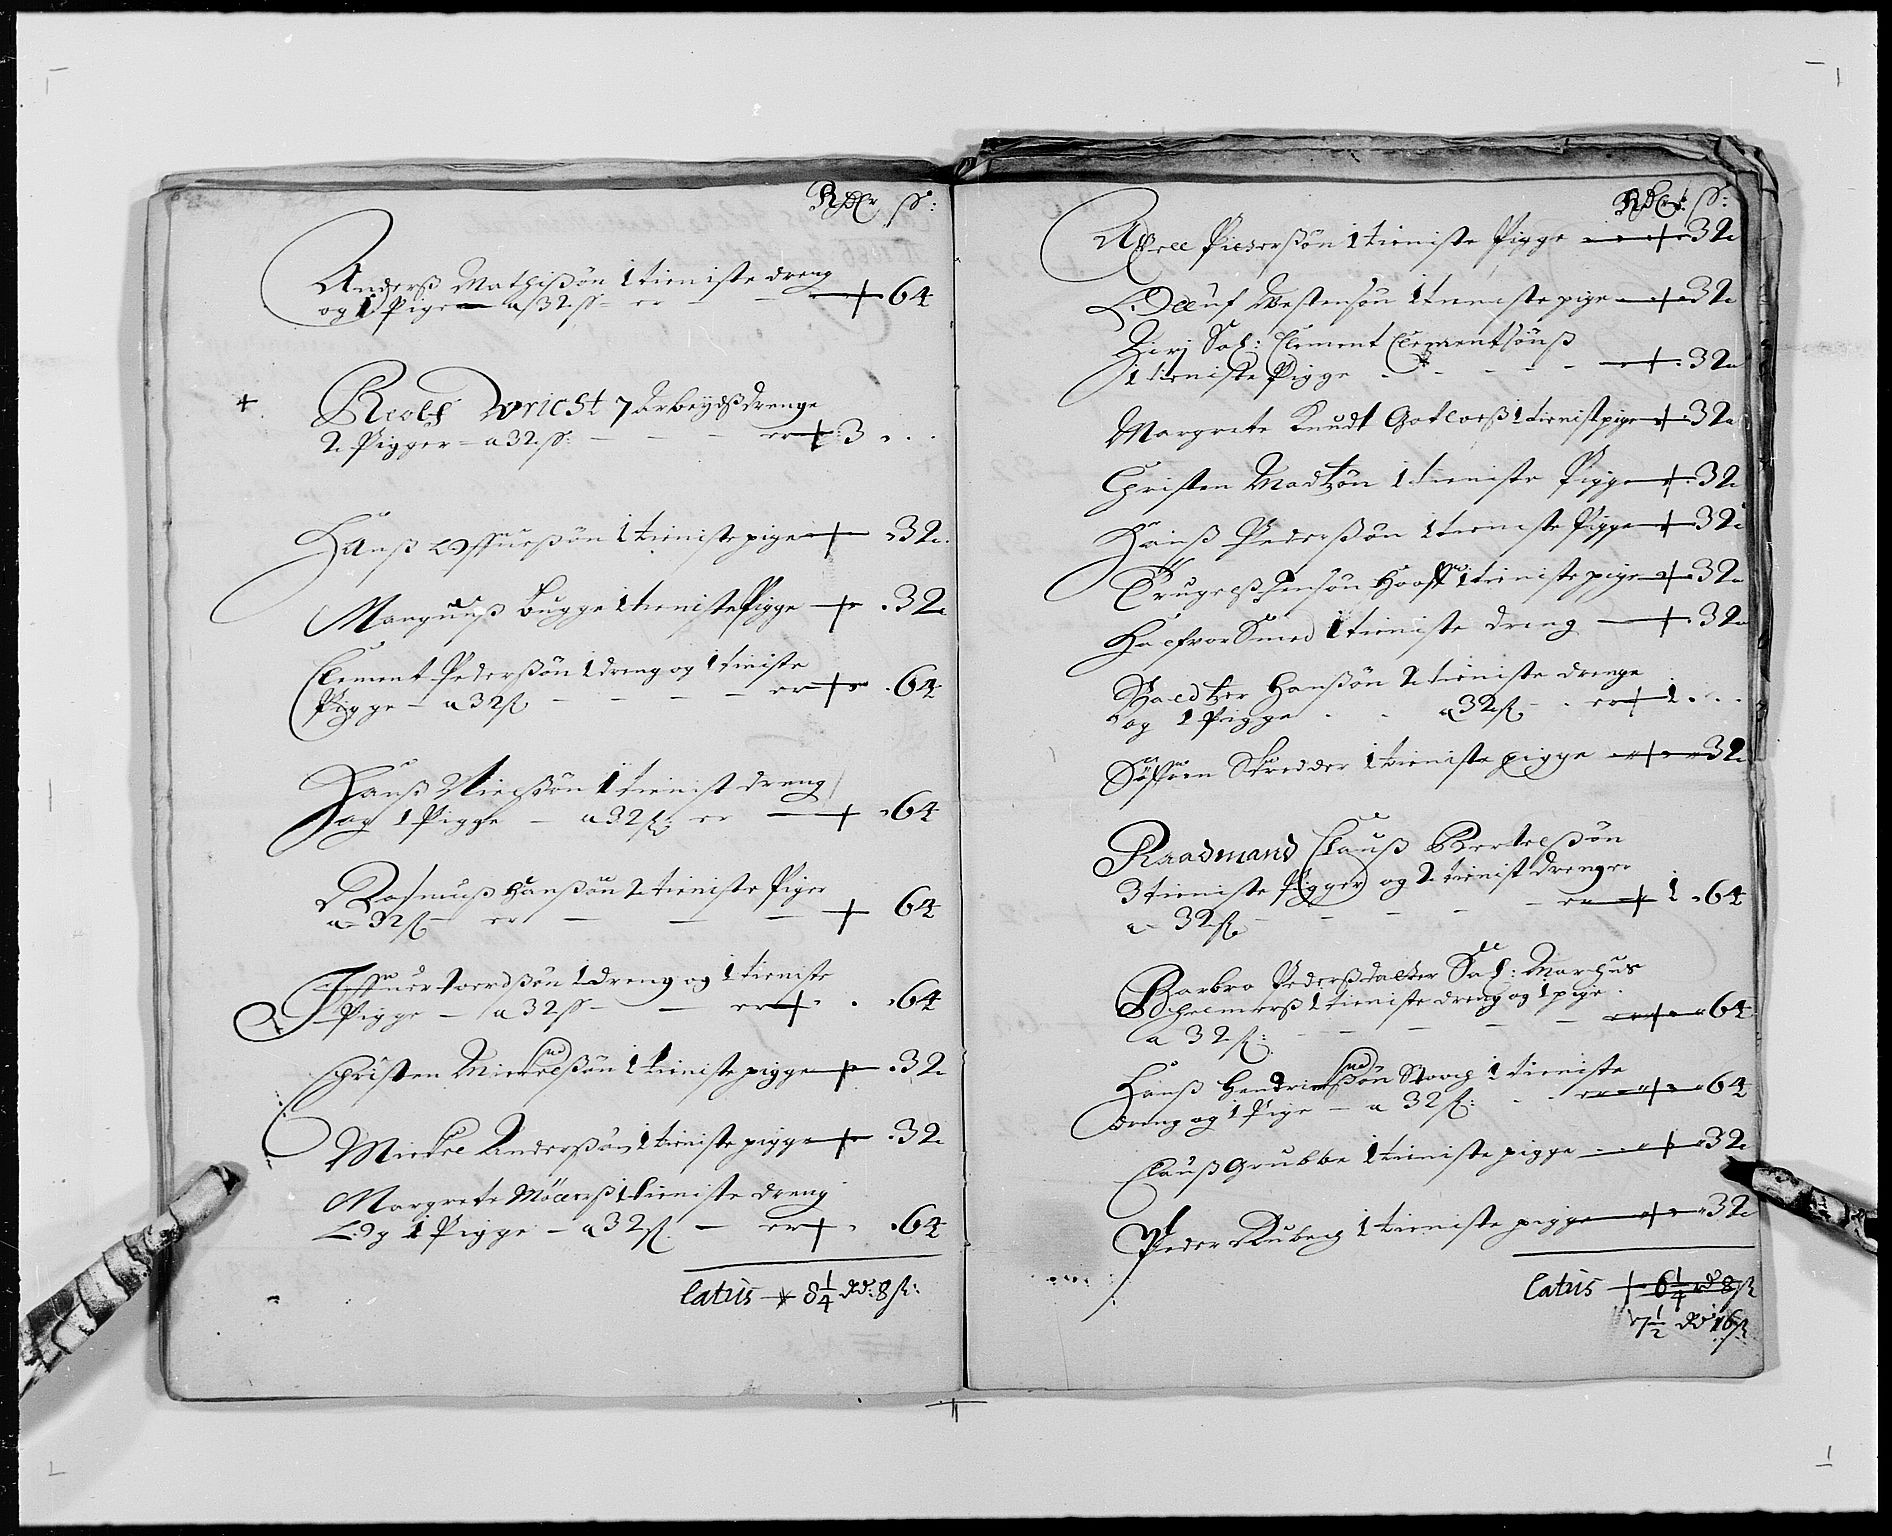 Rdlr ß:
Anderß Mathißøn 1 tieniste dreng
og 1 Pige a 32 ß er 64
+ Roloff Vriest 7 Arbeydßdrenge
2 Pigger a 32 ß: er 3
Hanß 1 tieniste pige 32
Mangnuß Bugge 1 tieniste Pigge 32
Clement Pederßøn 1 dreng og 1 tieniste
Pigge a 32 ß er 64
Hanß Nielßøn 1 tienist dreng
og 1 Pigge a 32 ß er 64
Rasmuß Hanßøn 2 tieniste Piger
a 32 ß er 64
Iffuer 1 dreng og 1 tieniste
Pigge a 32 ß er 64
Christen Mickelßøn 1 tieniste pigge 32
Mickel Anderßøn 1 tieniste pigge 32
Margrete Møllerß 1 tieniste dreng
Og 1 Pigge a 32 ß er 64
latus 8 1/4 rd: 8 ß:
Rdlr: ß:
Axell Pederßøn 1 tieniste Pigge 32
Oelluf 1 tieniste pige 32
Sal: Clement Clementsønß
1 tieniste Pigge 32
Margrete Knudt 1 tienist pige 32
Christen Madtzøn 1 tieniste Pigge 32
Hanß Pederßøn 1 tieniste Pigge 32
Trugelß Jensøn 1 tieniste pige 32
Halfvor Smed 1 tieniste dreng 32
Baltzer Hanßøn 2 tieniste drenge
og 1 Pigge a 32 ß er 1
Søffren Skredder 1 tieniste pigge 32
Raadmand Clauß Bertelßøn
3 tieniste Pigger og 2 tienist drenger
a 32 ß er 1 64
Barbro Pederßdatter Sal: Marcus
1 tieniste dreng og 1 pige
a 32 ß: er 64
Hanß Hendrichßøn 1 tieniste
dreng og 1 Pige a 32 ß: er 64
Clauß Grubbe 1 tieniste pigge 32
Peder 1 tieniste pigge 32
latus 6 1/4 rd 8 ß
7 1/2 rd 16 ß